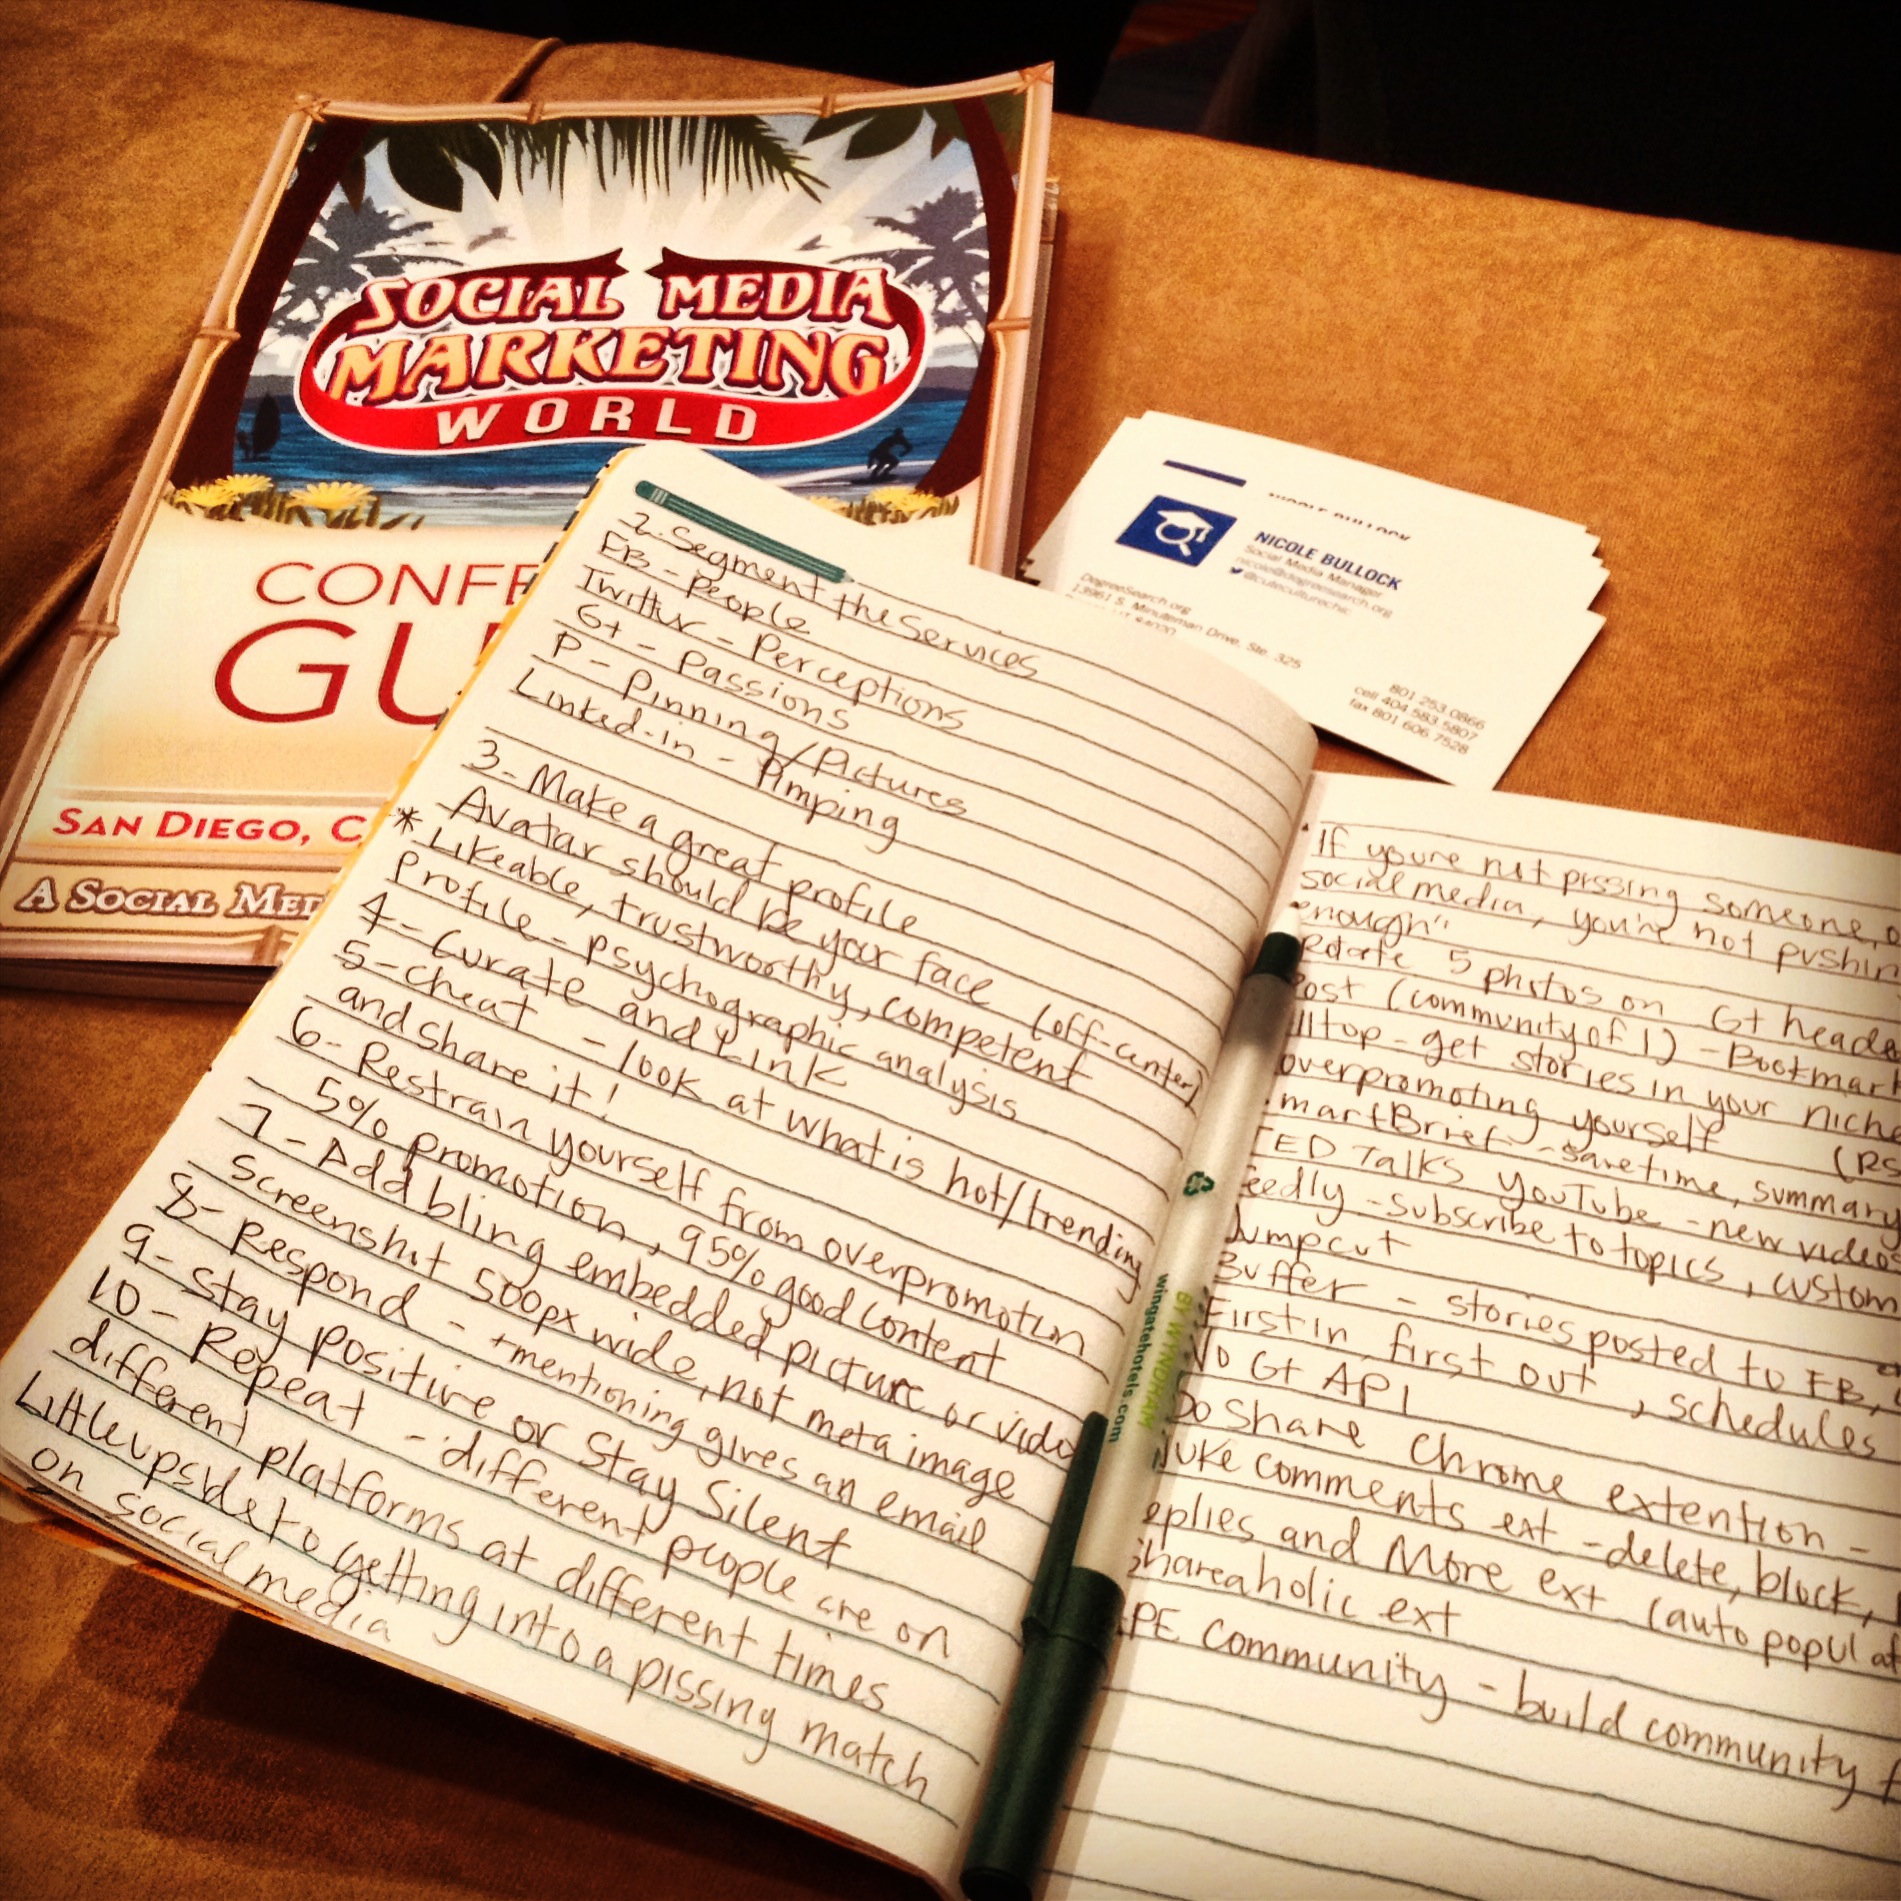 SOCIAL MEDIA
MARKETING
WORLD
CONFE
GU
SAN DIEGO, C
A SOCIAL MED
NICOLE BULLOCK
NICOLE BULLOCK
Social Media Manager
nicole@degreesearch.org
@cuteculturechic
DegreeSearch.org
13961 S. Minuteman Drive, Ste. 325
801 253 0866
cell 404 583 5807
fax 801 606 7528
2. Segment the services
FB - People
Twitter - Perceptions
G+ - Passions
P - Pinning/Pictures
Linked-in - Pimping
3- Make a great profile
Avatar should be your face (off-center)
* Likeable, trustworthy, competent
Profile - psychographic analysis
4- Curate and Link
5- cheat - look at what is hot/trending
and share it!
6- Restrain yourself from overpromotion
5% promotion, 95% good content
7- Add bling embedded picture or video
screenshot 500px wide, not meta image
8- Respond - +mentioning gives an email
9- Stay positive or Stay Silent
10- Repeat - different people are on
different platforms at different times
Little upside to getting into a pissing match
on social media
If youre not pissing someone, o
social media, you're not pushin
enough"
5 photos on G+ heade
ost (community of 1) - Bookmark
lltop - get stories in your niche
overpromoting yourself (RS
martBrief - save time, summary
TED Talks YouTube - new videos
eedly - subscribe to topics, custom
Jumpcut
Buffer - stories posted to FB,
First in, first out, schedules
No G+ API
Do Share Chrome extention -
Nuke comments ext - delete, block,
eplies and More ext (auto populat
Shareaholic ext
PE Community - build community f
BY WYNDHAM
wingatehotels.com